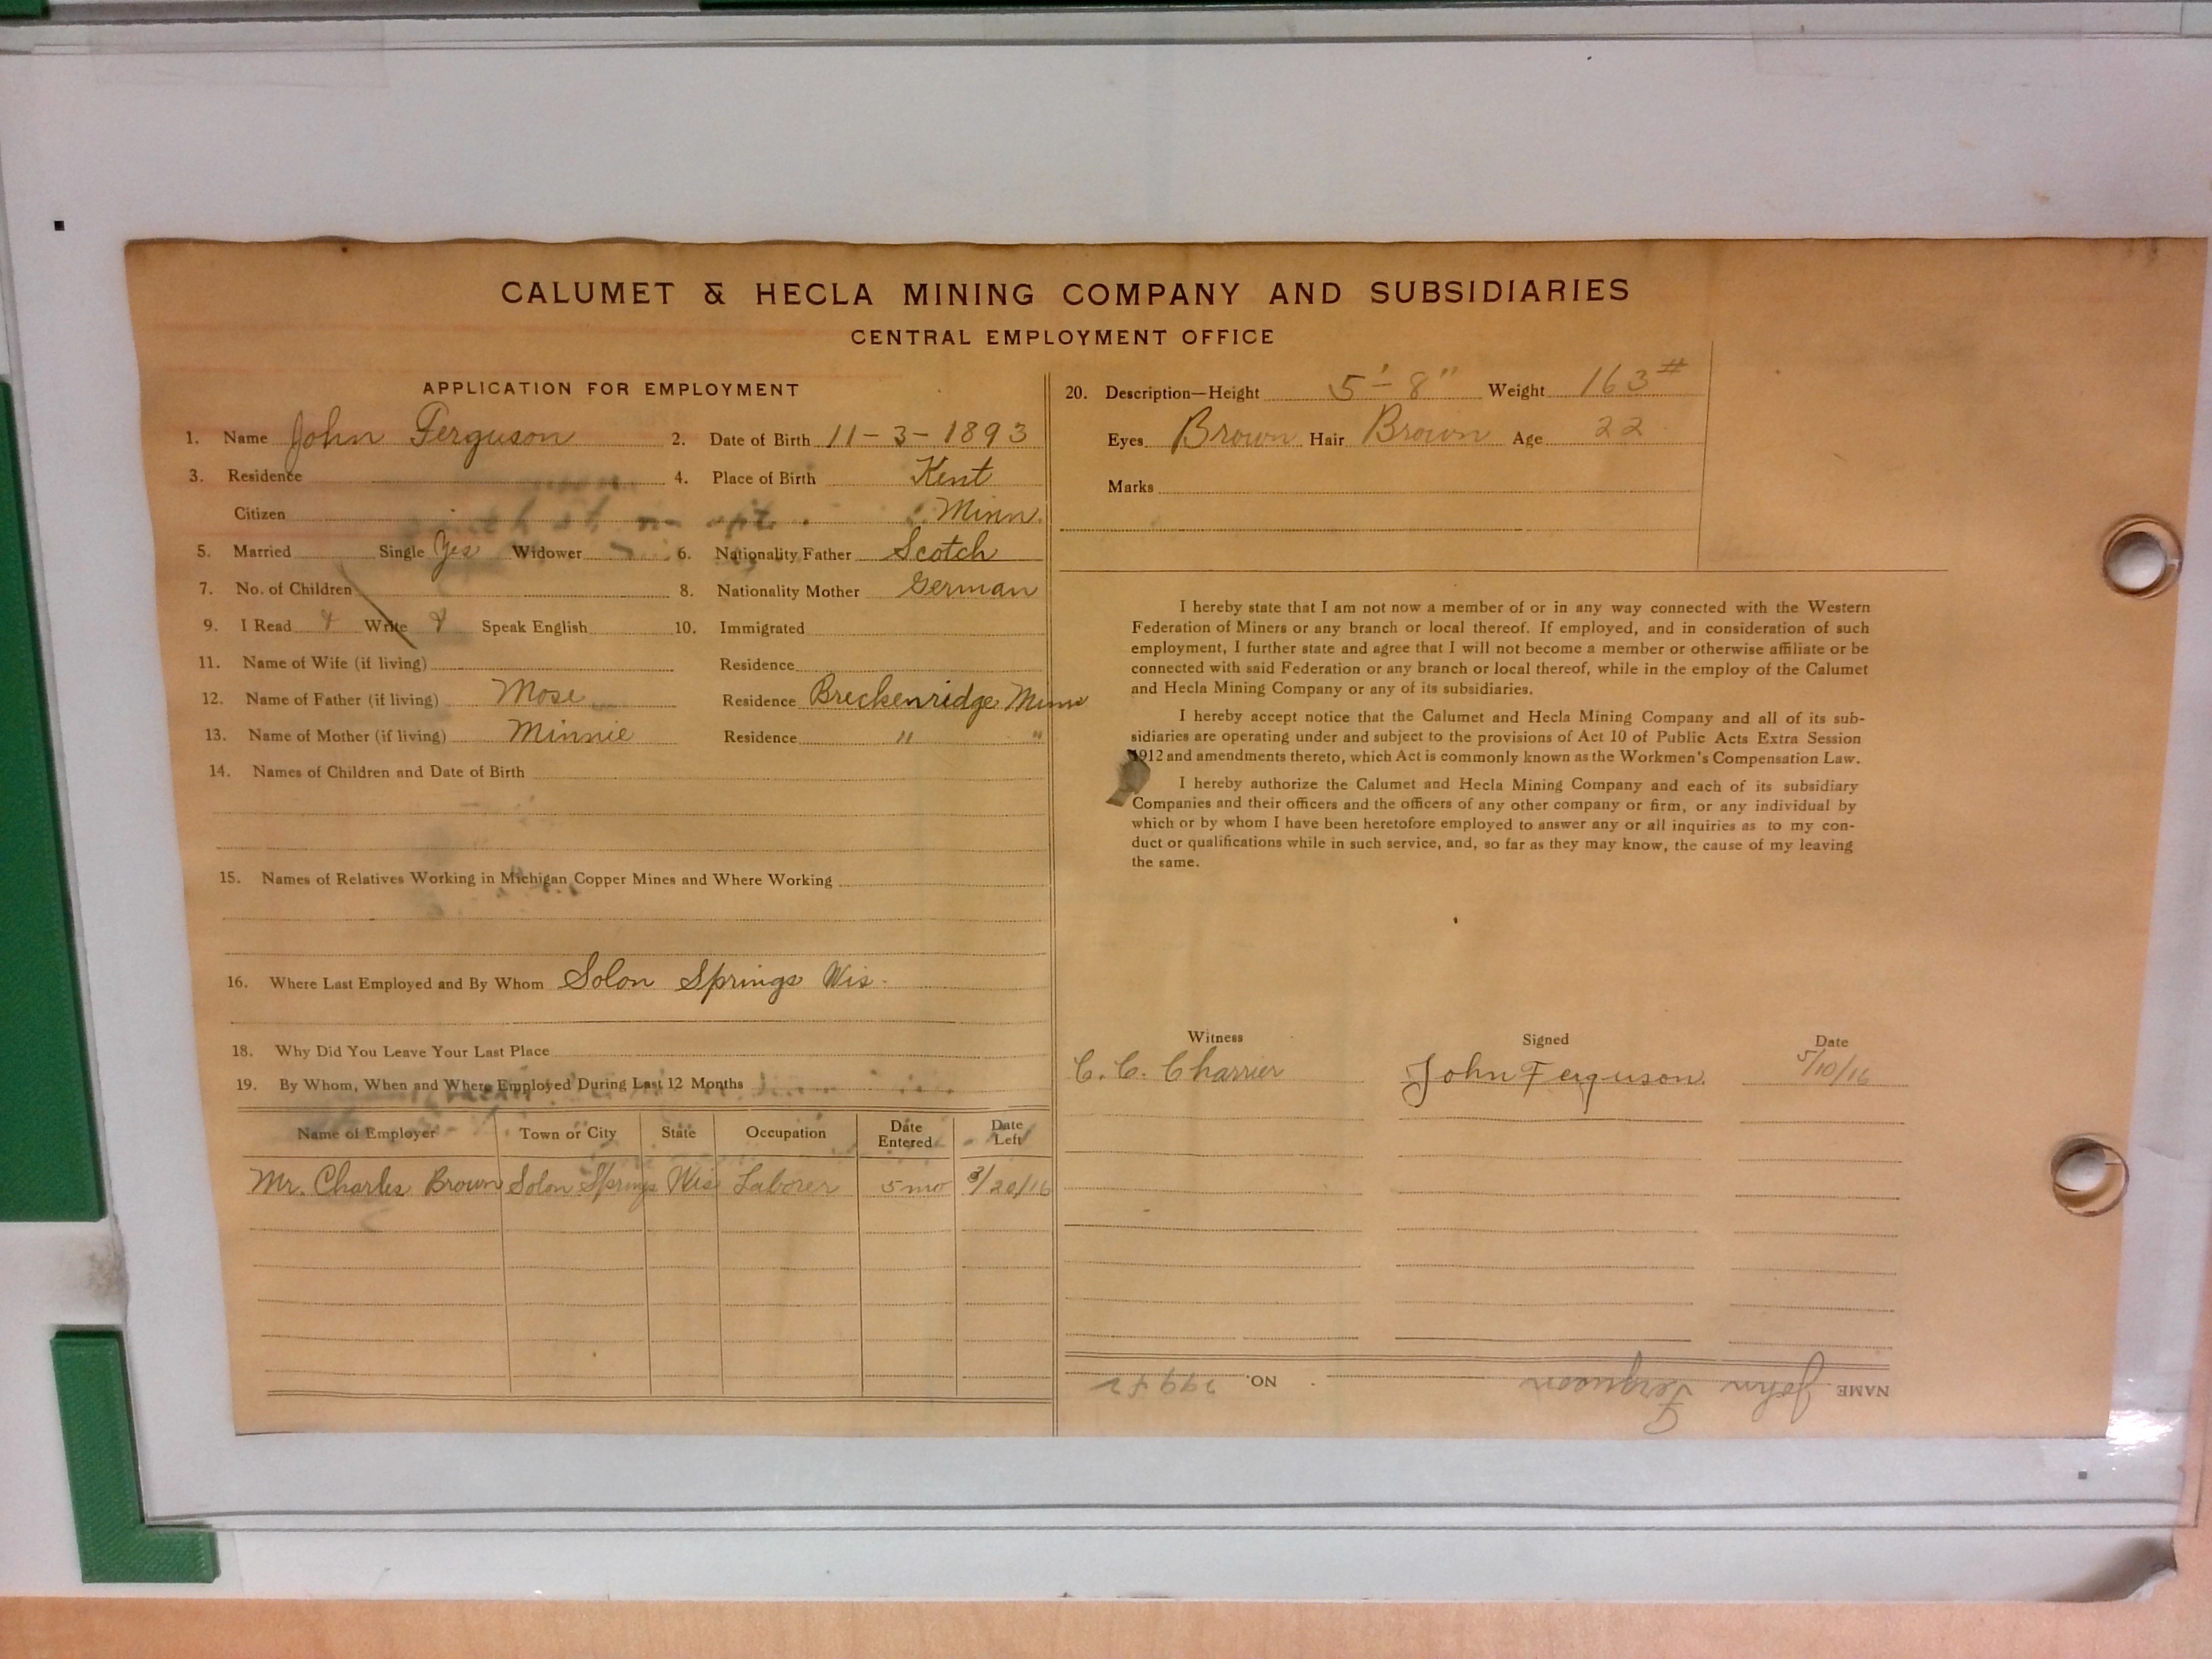 CALUMET & HECLA MINING COMPANY AND SUBSIDIARIES
CENTRAL EMPLOYMENT OFFICE
APPLICATION FOR EMPLOYMENT
1. Name John Ferguson 2. Date of Birth 11-3-1893
3. Residence 4. Place of Birth Kent
Citizen Minn.
5. Married Single Yes Widower 6. Nationality Father Scotch
7. No. of Children 8. Nationality Mother German
9. I Read Write Speak English 10. Immigrated
11. Name of Wife (if living) Residence
12. Name of Father (if living) Mose Residence Breckenridge Minn
13. Name of Mother (if living) Minnie Residence " "
14. Names of Children and Date of Birth
15. Names of Relatives Working in Michigan Copper Mines and Where Working
16. Where Last Employed and By Whom Solon Springs Wis.
18. Why Did You Leave Your Last Place
19. By Whom, When and Where Employed During Last 12 Months
Name of Employer Town or City State Occupation Date Entered Date Left
Mr. Charles Brown Solon Springs Wis Laborer 5 mo 3/20/16
20. Description—Height 5'-8" Weight 163#
Eyes Brown Hair Brown Age 22
Marks
I hereby state that I am not now a member of or in any way connected with the Western
Federation of Miners or any branch or local thereof. If employed, and in consideration of such
employment, I further state and agree that I will not become a member or otherwise affiliate or be
connected with said Federation or any branch or local thereof, while in the employ of the Calumet
and Hecla Mining Company or any of its subsidiaries.
I hereby accept notice that the Calumet and Hecla Mining Company and all of its sub-
sidiaries are operating under and subject to the provisions of Act 10 of Public Acts Extra Session
1912 and amendments thereto, which Act is commonly known as the Workmen's Compensation Law.
I hereby authorize the Calumet and Hecla Mining Company and each of its subsidiary
Companies and their officers and the officers of any other company or firm, or any individual by
which or by whom I have been heretofore employed to answer any or all inquiries as to my con-
duct or qualifications while in such service, and, so far as they may know, the cause of my leaving
the same.
Witness Signed Date
C. C. Charrier John Ferguson. 5/10/16
NAME John Ferguson NO.